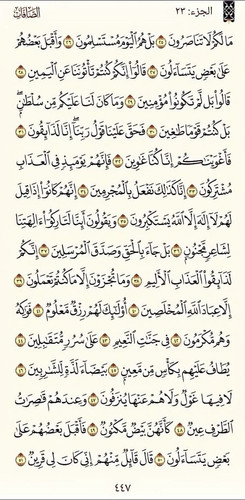 الجزء: ٢٣ الصافات
مَا لَكُمْ لَا تَنَاصَرُونَ ٢٥ بَلْ هُمُ الْيَوْمَ مُسْتَسْلِمُونَ ٢٦ وَأَقْبَلَ بَعْضُهُمْ
عَلَىٰ بَعْضٍ يَتَسَاءَلُونَ ٢٧ قَالُوا إِنَّكُمْ كُنتُمْ تَأْتُونَنَا عَنِ الْيَمِينِ ٢٨
قَالُوا بَل لَّمْ تَكُونُوا مُؤْمِنِينَ ٢٩ وَمَا كَانَ لَنَا عَلَيْكُم مِّن سُلْطَٰنٍ
بَلْ كُنتُمْ قَوْمًا طَٰغِينَ ٣٠ فَحَقَّ عَلَيْنَا قَوْلُ رَبِّنَا إِنَّا لَذَائِقُونَ ٣١
فَأَغْوَيْنَٰكُمْ إِنَّا كُنَّا غَٰوِينَ ٣٢ فَإِنَّهُمْ يَوْمَئِذٍ فِي الْعَذَابِ
مُشْتَرِكُونَ ٣٣ إِنَّا كَذَٰلِكَ نَفْعَلُ بِالْمُجْرِمِينَ ٣٤ إِنَّهُمْ كَانُوا إِذَا قِيلَ
لَهُمْ لَا إِلَٰهَ إِلَّا اللَّهُ يَسْتَكْبِرُونَ ٣٥ وَيَقُولُونَ أَئِنَّا لَتَارِكُوا ءَالِهَتِنَا
لِشَاعِرٍ مَّجْنُونٍ ٣٦ بَلْ جَاءَ بِالْحَقِّ وَصَدَّقَ الْمُرْسَلِينَ ٣٧ إِنَّكُمْ
لَذَائِقُوا الْعَذَابِ الْأَلِيمِ ٣٨ وَمَا تُجْزَوْنَ إِلَّا مَا كُنتُمْ تَعْمَلُونَ ٣٩
إِلَّا عِبَادَ اللَّهِ الْمُخْلَصِينَ ٤٠ أُولَٰئِكَ لَهُمْ رِزْقٌ مَّعْلُومٌ ٤١ فَوَٰكِهُ
وَهُم مُّكْرَمُونَ ٤٢ فِي جَنَّٰتِ النَّعِيمِ ٤٣ عَلَىٰ سُرُرٍ مُّتَقَٰبِلِينَ ٤٤
يُطَافُ عَلَيْهِم بِكَأْسٍ مِّن مَّعِينٍ ٤٥ بَيْضَاءَ لَذَّةٍ لِّلشَّٰرِبِينَ ٤٦
لَا فِيهَا غَوْلٌ وَلَا هُمْ عَنْهَا يُنزَفُونَ ٤٧ وَعِندَهُمْ قَٰصِرَٰتُ
الطَّرْفِ عِينٌ ٤٨ كَأَنَّهُنَّ بَيْضٌ مَّكْنُونٌ ٤٩ فَأَقْبَلَ بَعْضُهُمْ عَلَىٰ
بَعْضٍ يَتَسَاءَلُونَ ٥٠ قَالَ قَائِلٌ مِّنْهُمْ إِنِّي كَانَ لِي قَرِينٌ ٥١
٤٤٧